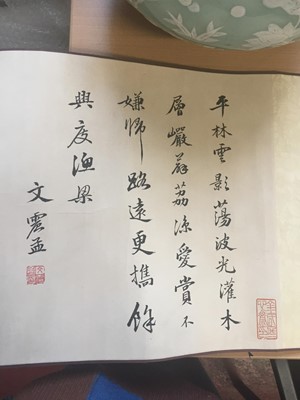 平林雲影蕩波光灌木
層巖薜荔涼愛賞不
嫌歸路遠更攜餘
興度漁梁
文震孟